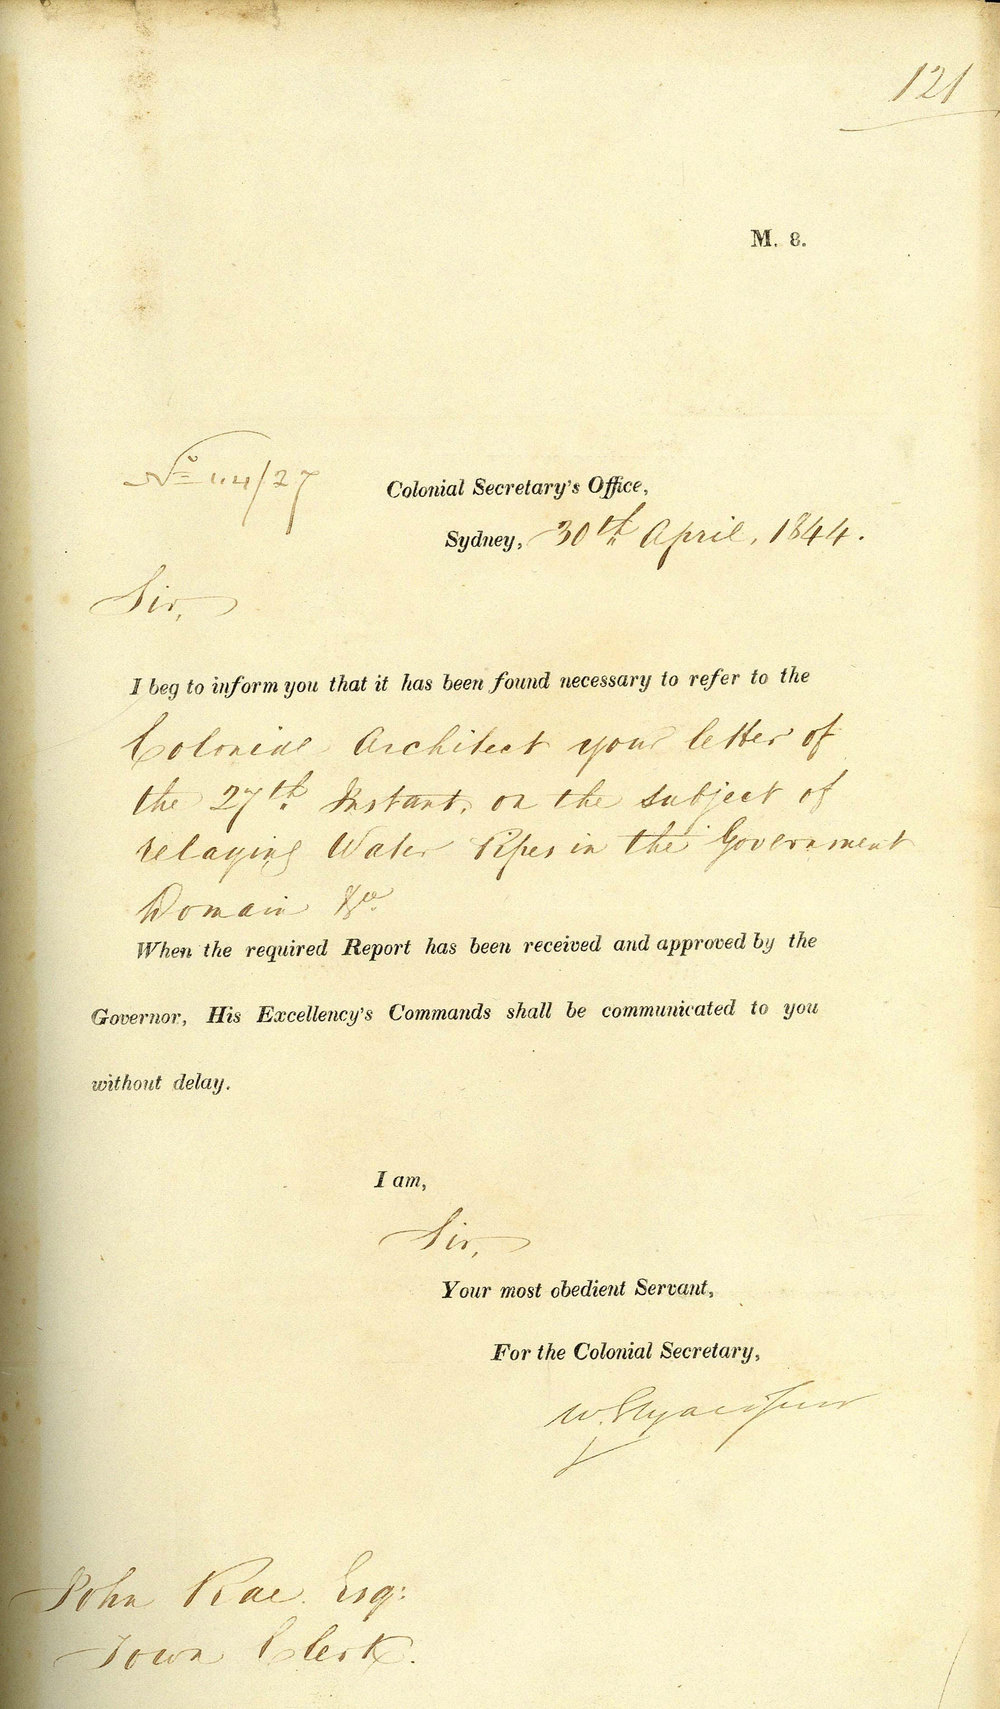 121
M. 8.
No 44/27
Colonial Secretary's Office,
Sydney, 30th April, 1844.
Sir,
I beg to inform you that it has been found necessary to refer to the
Colonial Architect your letter of
the 27th Instant, on the subject of
relaying Water Pipes in the Government
Domain &ca
When the required Report has been received and approved by the
Governor, His Excellency's Commands shall be communicated to you
without delay.
I am,
Sir,
Your most obedient Servant,
For the Colonial Secretary,
W. Elyard Junr
John Rae. Esq:
Town Clerk.